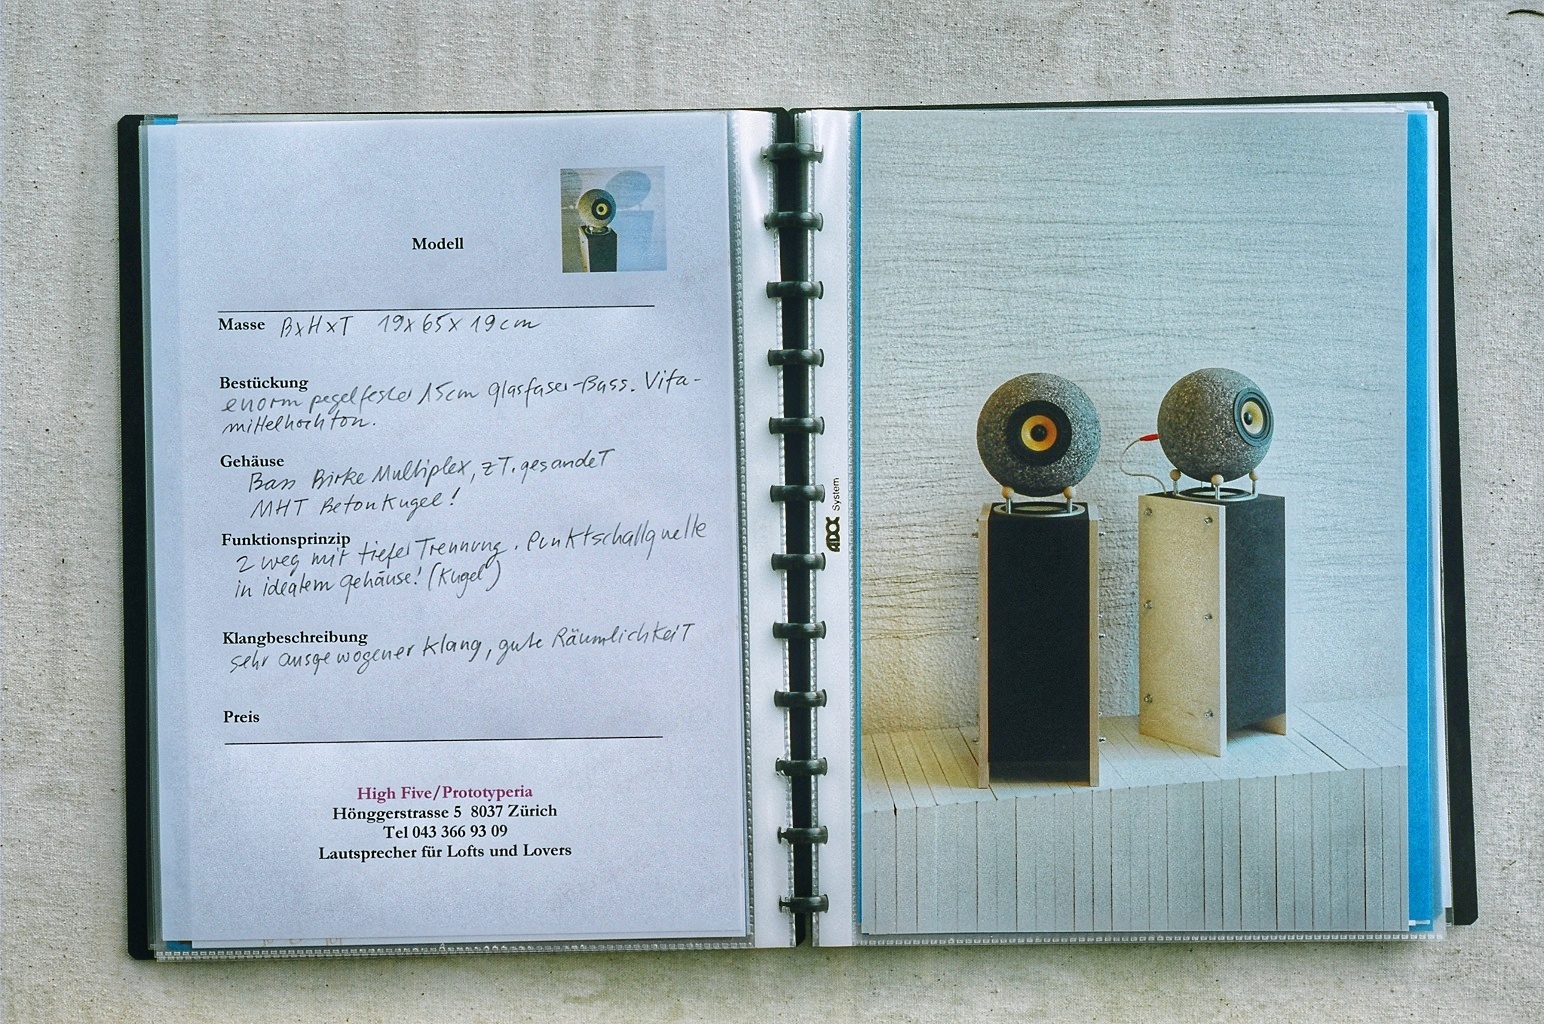 Modell
Masse BxHxT 19x65x19cm
Bestückung
enorm pegelfester 15cm Glasfaser-Bass. Vifa-
mittelhochton.
Gehäuse
Bass Birke Multiplex, z.T. gesandet
MHT Betonkugel!
Funktionsprinzip
2 weg mit tiefer Trennung. Punktschallquelle
in idealem Gehäuse! (Kugel)
Klangbeschreibung
sehr ausgewogener Klang, gute Räumlichkeit
Preis
High Five/Prototyperia
Hönggerstrasse 5 8037 Zürich
Tel 043 366 93 09
Lautsprecher für Lofts und Lovers
ADOC System